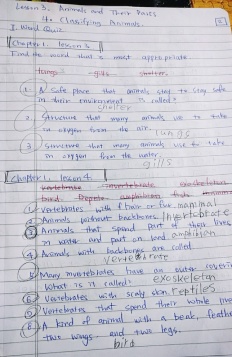 Lesson 3. Animals and Their Parts
4. Classifying Animals.
I. Word Quiz
Chapter 1. lesson 3
Find the word that is most appropriate
lungs gills shelter
1. A safe place that animals stay to stay safe
in their environment is called?
shelter
2. Structure that many animals use to take
in oxygen from the air.
lungs
3. Structure that many animals use to take
in oxygen from the water.
gills
Chapter 1. lesson 4
vertebrate invertebrate exoskeleton
bird reptile amphibian fish mammal
1. Vertebrates with fur mammal
2. Animals without backbones. Invertebrate
3. Animals that spend part of their lives
in water and part on land amphibian
4. Animals with backbones are called
vertebrate
5. Many invertebrates have an outer covering
What is it called? exoskeleton
6. Vertebrates with scaly skin reptiles
7. Vertebrates that spend their whole lives
8. A kind of animal with a beak, feathers
two wings and two legs.
bird